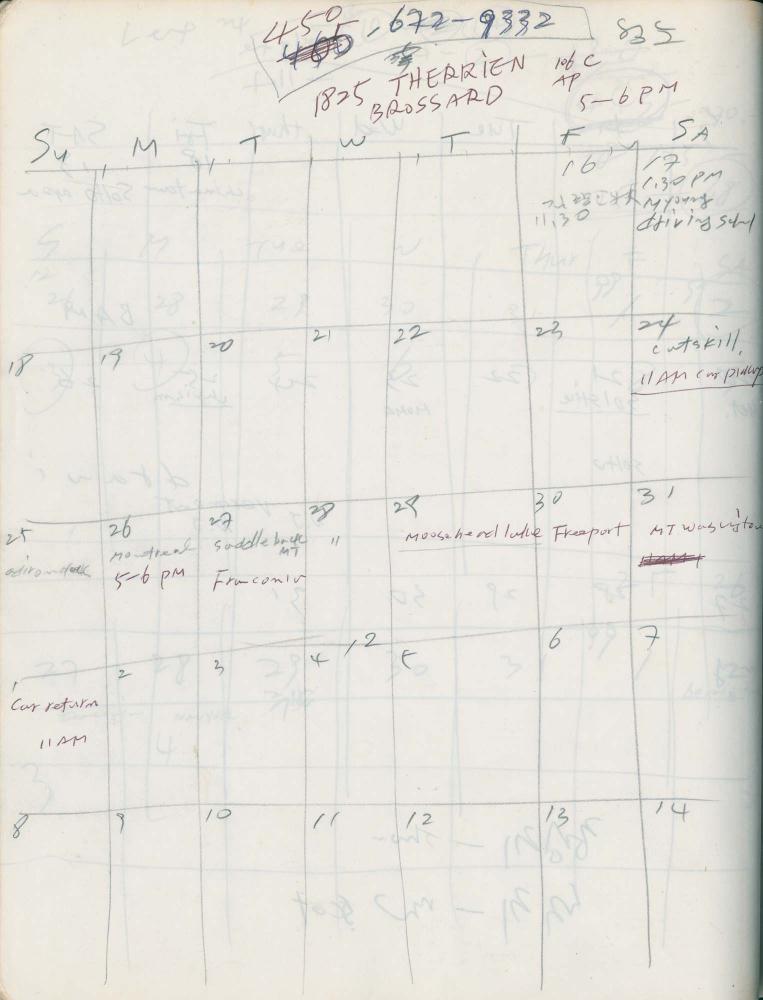 450
465, 672-9332 835
1825 THERRIEN 106 C
BROSSARD AP
5-6 PM
SU M T W T F SA
16 17
1,30 PM
Myoung
11,30 driving school
18 19 20 21 22 23 24
Cutskill,
11 AM Car pickup
25 26 27 28 29 30 31
adirondack Montreal Saddleback " Moosehead lake Freeport MT Wasington
5-6 PM MT
Franconia
11AM
1 2 3 4 12 5 6 7
Car return
11 AM
8 9 10 11 12 13 14